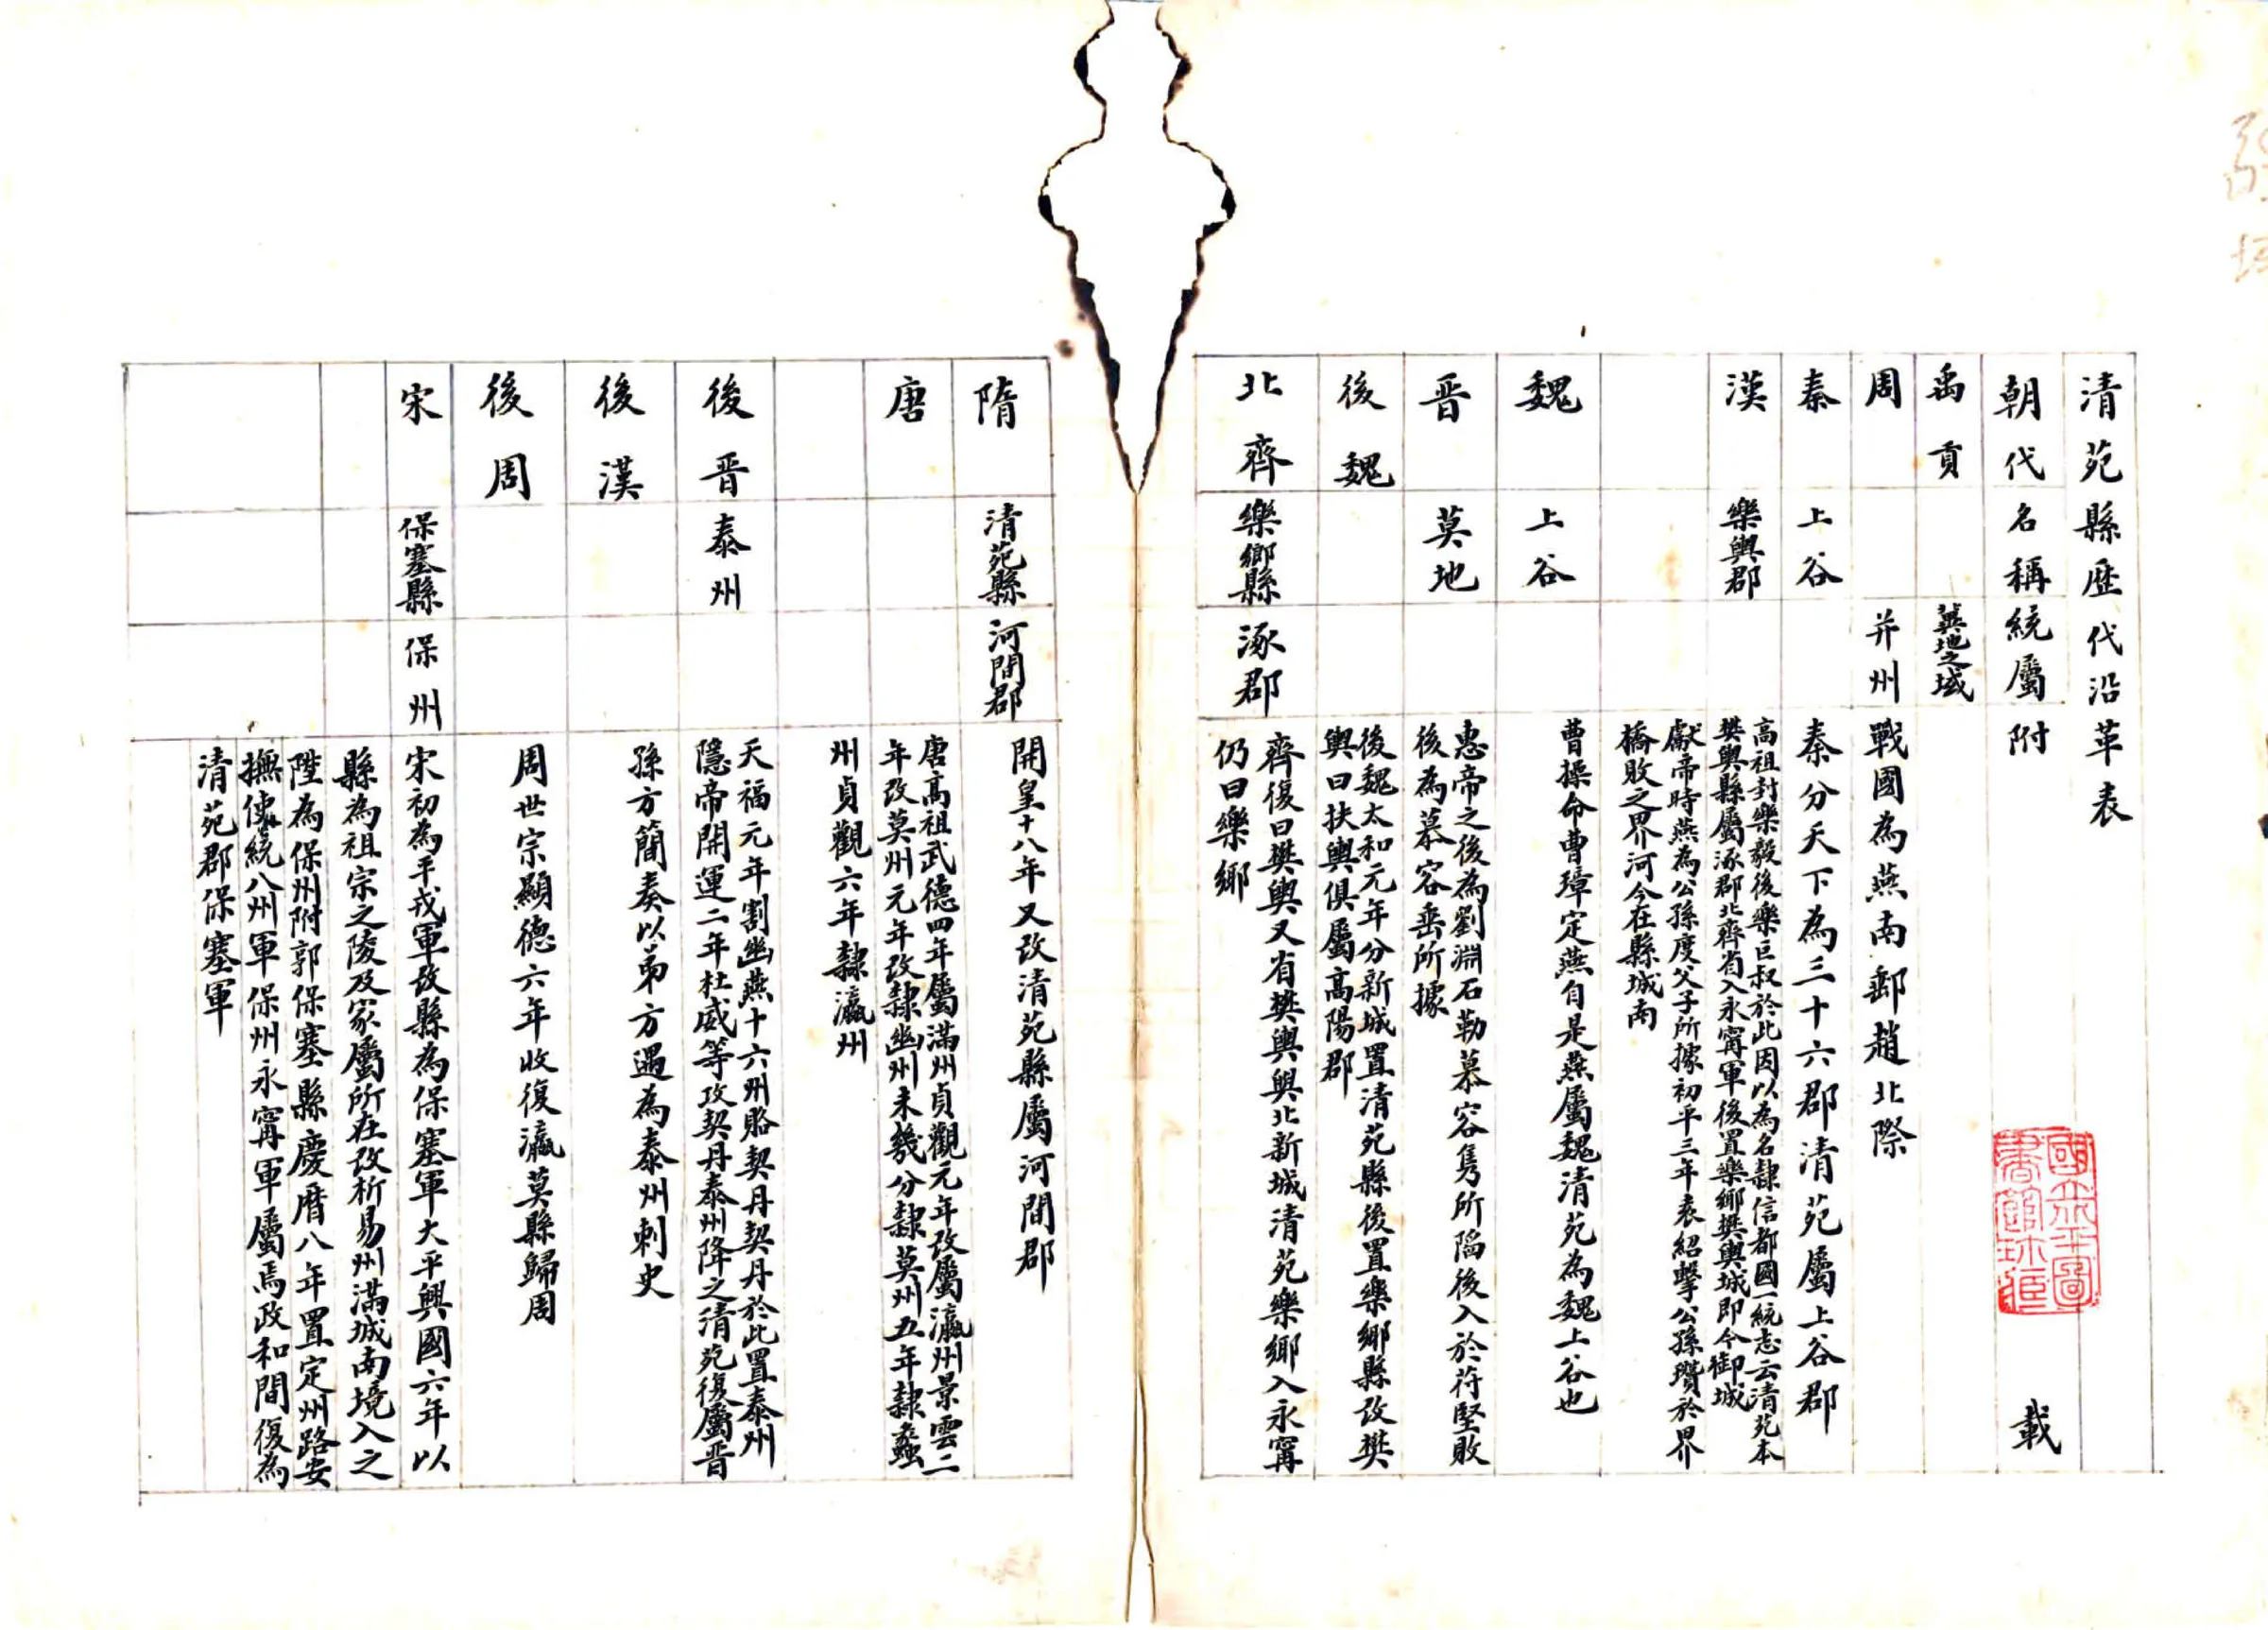 清苑縣歷代沿革表
朝代 名稱 統屬 附 載
禹貢 冀地之域
周 并州 戰國為燕南郵趙北際
秦 上谷 秦分天下為三十六郡清苑屬上谷郡
漢 樂輿郡 高祖封樂毅後樂巨叔於此因以為名隸信都國一統志云清苑本
樊輿縣屬涿郡北齊省入永寧軍後置樂鄉樊輿城即今御城
獻帝時燕為公孫度父子所據初平三年袁紹擊公孫瓚於界
橋敗之界河今在縣城南
魏 上谷 曹操命曹璋定燕自是燕屬魏清苑為魏上谷也
晋 莫地 惠帝之後為劉淵石勒慕容隽所陷後入於苻堅敗
後為慕容垂所據
後魏 後魏太和元年分新城置清苑縣後置樂鄉縣改樊
輿曰扶輿俱屬高陽郡
北齊 樂鄉縣 涿郡 齊復曰樊輿又省樊輿與北新城清苑樂鄉入永寧
仍曰樂鄉
隋 清苑縣 河間郡 開皇十八年又改清苑縣屬河間郡
唐 唐高祖武德四年屬滿州貞觀元年改屬瀛州景雲二
年改莫州元年改隸幽州未幾分隸莫州五年隸蠡
州貞觀六年隸瀛州
後晋 泰州 天福元年割幽燕十六州賂契丹契丹於此置泰州
隱帝開運二年杜威等攻契丹泰州降之清苑復屬晋
後漢 孫方簡奏以弟方遇為泰州刺史
後周 周世宗顯德六年收復瀛莫縣歸周
宋 保塞縣 保州 宋初為平戎軍改縣為保塞軍大平興國六年以
縣為祖宗之陵及家屬所在改析易州滿城南境入之
陞為保州附郭保塞縣慶曆八年置定州路安
撫使統八州軍保州永寧軍屬焉政和間復為
清苑郡保塞軍
國立北平圖
書館珍藏